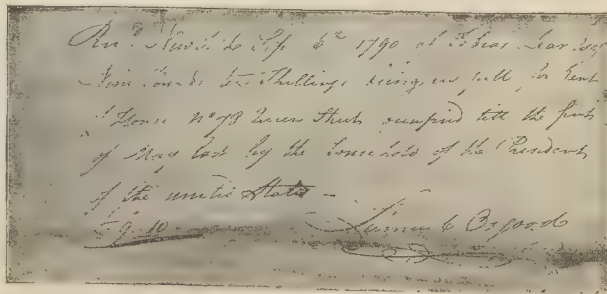 Rec.d New York Sep. 6th 1790 of Tobias Lear Esq
Nine Pounds Ten Shillings being in full for Rent
of House No 78 Queen Street occupied till the first
of May last by the household of the President
of the united States —
£9.10 Samuel Osgood